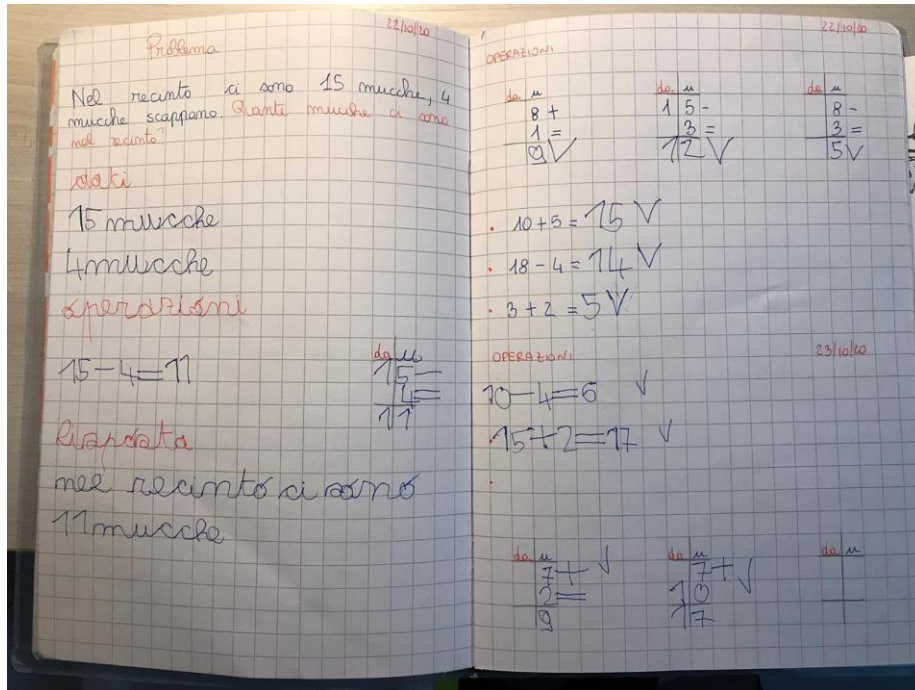 22/10/20
Problema
Nel recinto ci sono 15 mucche, 4
mucche scappano. Quante mucche ci sono
nel recinto?
dati
15 mucche
4 mucche
operazioni
15-4=11
da u
15-
4=
11
Risposta
nel recinto ci sono
11 mucche
22/10/20
OPERAZIONI
da u da u da u
8 + 1 5 - 8 -
1 = 3 = 3 =
9 V 12 V 5 V
· 10 + 5 = 15 V
· 18 - 4 = 14 V
· 3 + 2 = 5 V
OPERAZIONI 23/10/20
10-4=6 V
· 15+2=17 V
·
da u da u da u
7+ V 7+ V
2= 10
9 17